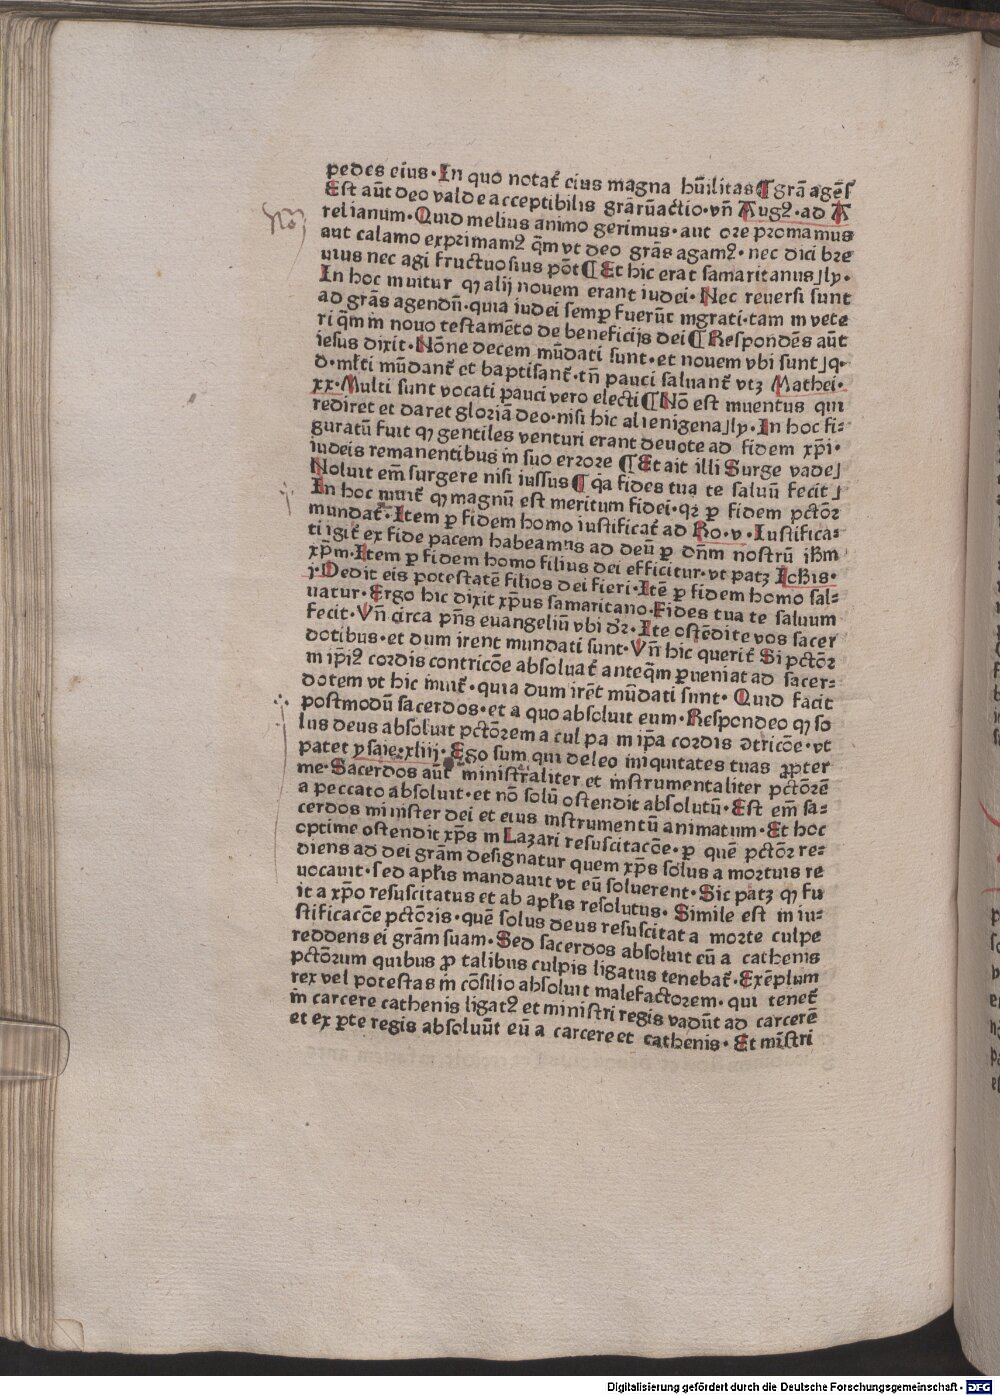 pedes eius·In quo notat᷑ eius magna hūilitas¶grã agẽſ
Est aūt deo valde acceptibilis grãrūactio·vñ Augꝰ·ad A
relianum·Quid melius animo gerimus·aut ore promamus
aut calamo exprimamꝰ q̃m vt deo grãs agamꝰ·nec dici bre
uius nec agi fructuosius põt¶Et hic erat samaritanus⌋ly·
In hoc inuitur ꝙ alij nouem erant iudei·Nec reuersi sunt
ad grãs agendū·quia iudei semꝑ fuerūt ingrati·tam in vete
ri q̃m in nouo testamẽto de beneficijs dei¶Respondẽs aūt
iesus dixit·Nõne decem mūdati sunt·et nouem vbi sunt⌋q·
d·mƚti mūdant᷑ et baptisant᷑·tñ pauci saluant᷑ vtꝫ Mathei·
xx·Multi sunt vocati pauci vero electi¶Nõ est inuentus qui
rediret et daret gloriã deo·nisi hic alienigena⌋ly·In hoc fi⸗
guratū fuit ꝙ gentiles venturi erant deuote ad fidem xp̄i·
iudeis remanentibus in suo errore¶Et ait illi Surge vade⌋
Noluit em̄ surgere nisi iussus¶q̇a fides tua te saluū fecit⌋
In hoc inuit᷑ ꝙ magnū est meritum fidei·qꝛ ꝑ fidem pctõꝛ
mundat᷑·Item ꝑ fidem homo iustificat᷑ ad Ro·v·Iustifica⸗
ti igit᷑ ex fide pacem habeamus ad deū ꝑ dñm nostrū iħm
xp̄m·Item ꝑ fidem homo filius dei efficitur·vt patꝫ Ioħis·
j·Dedit eis potestatẽ filios dei fieri·Itẽ ꝑ fidem homo sal⸗
uatur·Ergo hic dixit xp̄us samaritano·Fides tua te saluum
fecit·Vñ circa pñs euangeliū vbi dꝛ·Ite ostẽdite vos sacer
dotibus·et dum irent mundati sunt·Vñ hic querit᷑ Si pctõꝛ
in ip̄iꝰ cordis contricõe absoluat᷑ anteq̃m ꝑueniat ad sacer⸗
dotem vt hic inuit᷑·quia dum irẽt mūdati sunt·Quid facit
postmodū sacerdos·et a quo absoluit eum·Respondeo ꝙ so
lus deus absoluit pctõrem a culpa in ip̄a cordis ↄtricõe·vt
patet ysaie·xliij·Ego sum qui deleo iniquitates tuas ꝓpter
me·Sacerdos aūt ministraliter et instrumentaliter pctõrẽ
a peccato absoluit·et nõ solū ostendit absolutū·Est em̄ sa⸗
cerdos minister dei et eius instrumentū animatum·Et hoc
optime ostendit xp̄s in Lazari resuscitacõe·ꝑ quẽ pctõꝛ re⸗
diens ad dei grãm designatur quem xp̄s solus a mortuis re
uocauit·sed apƚis mandauit vt eū soluerent·Sic patꝫ ꝙ fu
it a xp̄o resuscitatus et ab apƚis resolutus·Simile est in iu⸗
stificacõe pctõris·quẽ solus deus resuscitat a morte culpe
reddens ei grãm suam·Sed sacerdos absoluit eū a cathenis
pctõrum quibus ꝓ talibus culpis ligatus tenebat᷑·Exẽplum
rex vel potestas in cõsilio absoluit malefactorem·qui tenet᷑
in carcere cathenis ligatꝰ et ministri regis vadūt ad carcerẽ
et ex ꝑte regis absoluūt eū a carcere et cathenis·Et mīstri
Digitalisierung gefördert durch die Deutsche Forschungsgemeinschaft - DFG